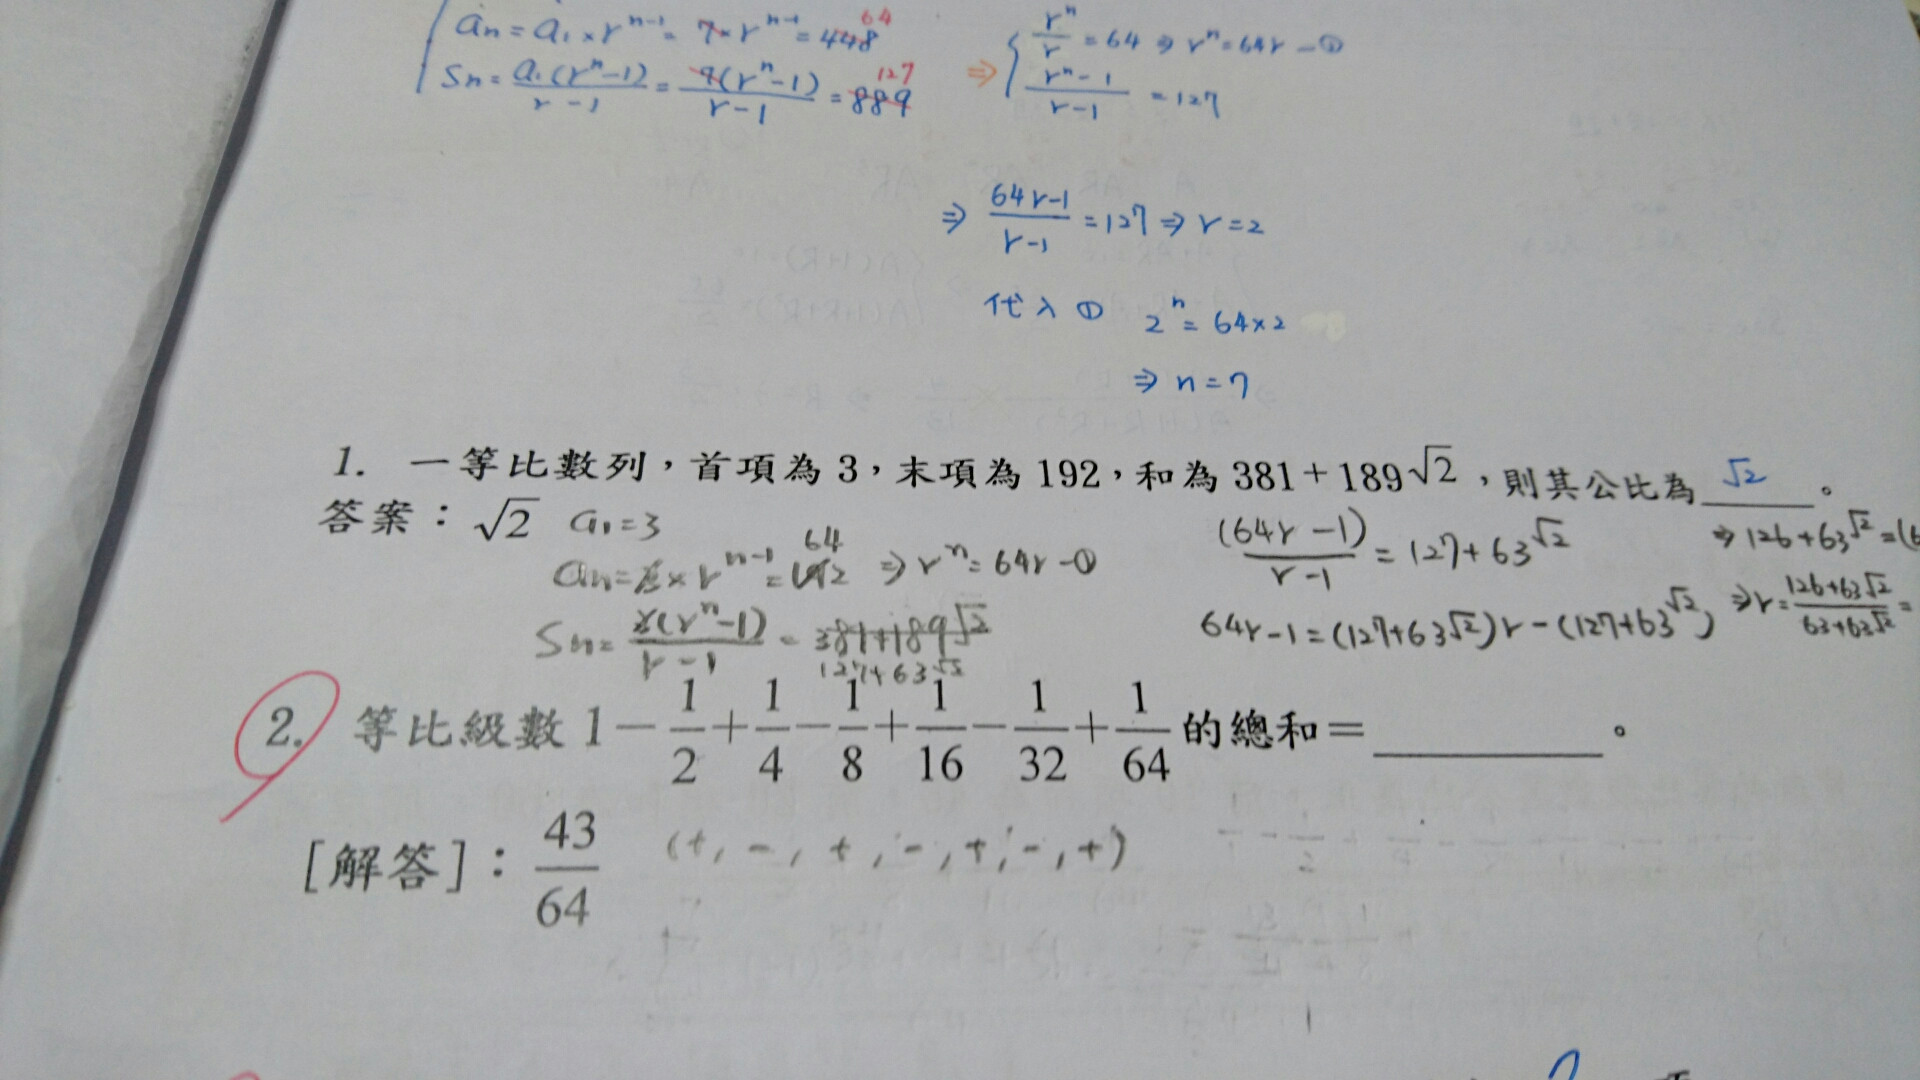 an = a1 × r^(n-1) = 7 × r^(n-1) = 448 64
Sn = a1(r^n-1)/(r-1) = 7(r^n-1)/(r-1) = 889 127
⇒ { r^n/r = 64 ⇒ r^n = 64r - ①
(r^n-1)/(r-1) = 127
⇒ (64r-1)/(r-1) = 127 ⇒ r = 2
代入① 2^n = 64×2
⇒ n = 7
1. 一等比數列，首項為 3，末項為 192，和為 381+189√2，則其公比為 √2 。
答案：√2 a1 = 3
an = 3 × r^(n-1) = 192 64 ⇒ r^n = 64r - ①
Sn = 3(r^n-1)/(r-1) = 381+189√2
127+63√2
(64r-1)/(r-1) = 127+63√2
64r-1 = (127+63√2)r - (127+63√2)
⇒ 126+63√2 = (6
⇒ r = (126+63√2)/(63+63√2) =
2. 等比級數 1 - 1/2 + 1/4 - 1/8 + 1/16 - 1/32 + 1/64 的總和= 。
[解答]： 43/64 (+, -, +, -, +, -, +)